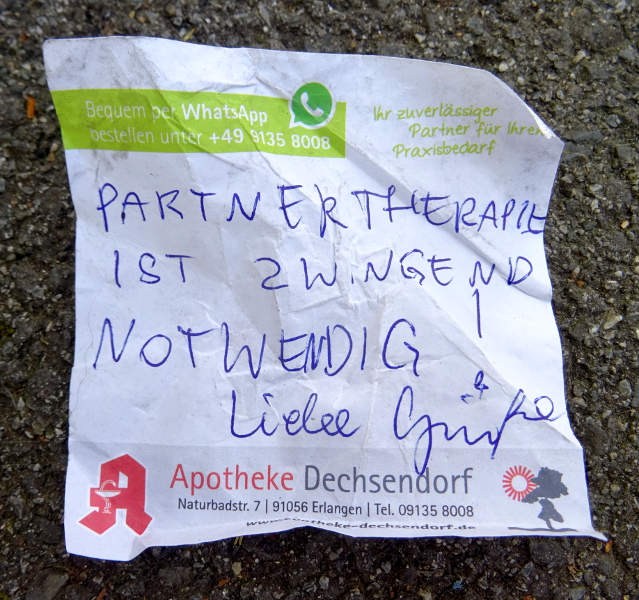 Bequem per WhatsApp
bestellen unter +49 9135 8008
Ihr zuverlässiger
Partner für Ihren
Praxisbedarf
PARTNERTHERAPIE
IST ZWINGEND
NOTWENDIG !
Liebe Grüße
Apotheke Dechsendorf
Naturbadstr. 7 | 91056 Erlangen | Tel. 09135 8008
www.apotheke-dechsendorf.de